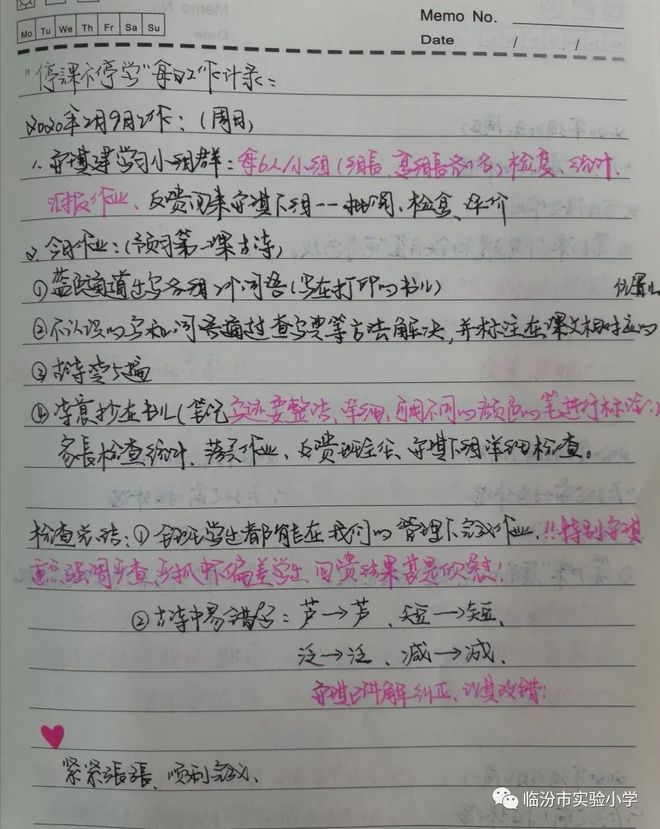 Memo No.
Mo Tu We Th Fr Sa Su
Date / /
"停课不停学"每日工作记录：
2020年2月9日工作：(周日)
1、守琪建学习小组群：每6人/小组(组长、副组长约名)检复、统计、
汇报作业、反馈回来守琪下组--批阅、检复、评价
2、今日作业：(预习第一课古诗)
①蓝色通道生字各组2个词语(写在打印的书上)
②不认识的字和词语通过查字典等方法解决,并标注在课文相对应的
位置上
③古诗读5遍
④诗意抄在书上(笔记字迹要整洁、详细,可用不同的颜色的笔进行标注。)
家长检查统计、落实作业、反馈班主任、守琪下组详细检查。
检查总结：①全班学生都能在我们的管理下完成作业,!!特别守琪
重点强调严查,严抓 偏差学生,回馈结果甚是欣慰!
②古诗中易错字：芦→芦、短→短、
泛→泛、减→减、
守琪已讲解纠正、以其改错!
紧紧张张、顺利完成、
临汾市实验小学